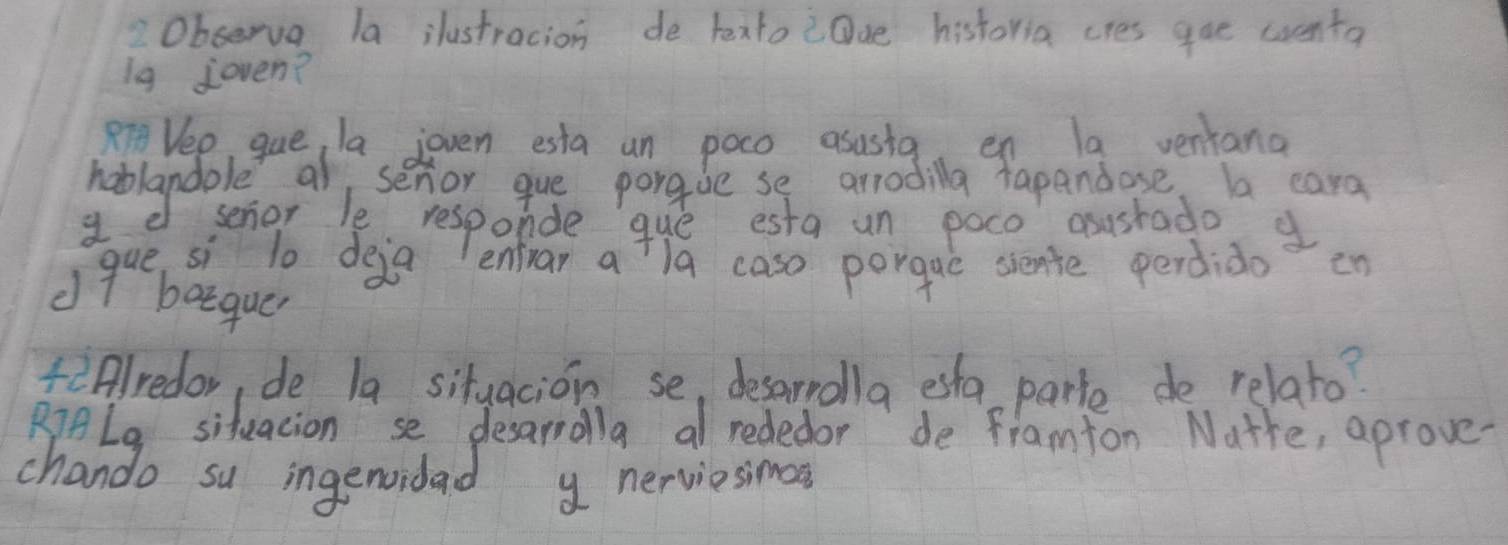 2 Observa la ilustracion de texto ¿Que historia cres que cuenta
la joven?
RTA Veo que, la joven esta un poco asusta en la ventana
hablandole al, señor que porque se arrodilla tapandose la cara
y el señor le responde que esta un poco asustado y
que si lo deja entrar a la casa porque siente perdido en
el bozque.
4 ¿Alredor, de la situación se, desarrolla esta parte de relato?
RTA La situacion se desarrolla al rededor de framton Natte, aprove-
chando su ingenuidad y